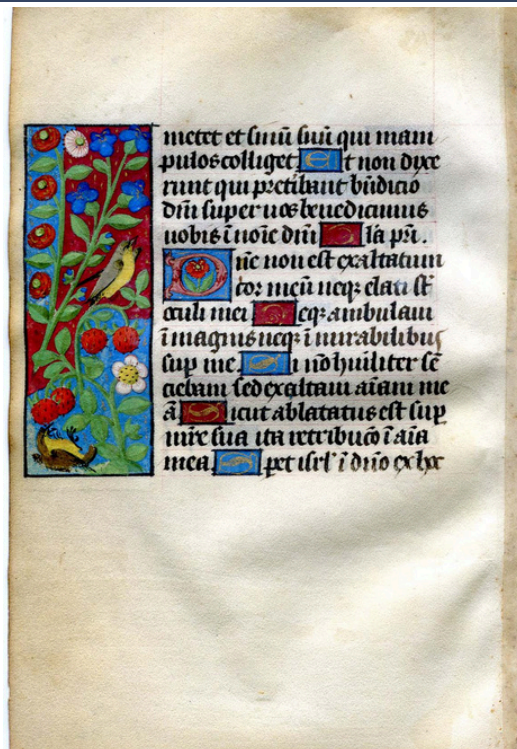 metet et sinū suū qui mani
pulos colliget. Et non dixe
runt qui pretibant bn̄dictio
dm̄ super uos benediximus
uobis ī noīe dnī Gla pr̄i.
Dn̄e non est exaltatum
cor meū neqȝ elati st̄
oculi mei Neqȝ ambulaui
ī magnis neqȝ ī mirabilibus
sup me. Si nō hūiliter sē
ciebam sed exaltaui aīam me
ā Sicut ablatatus est sup
mr̄e sua ita retribucō ī aīa
mea. Spet isrl' ī dn̄o ex hoc